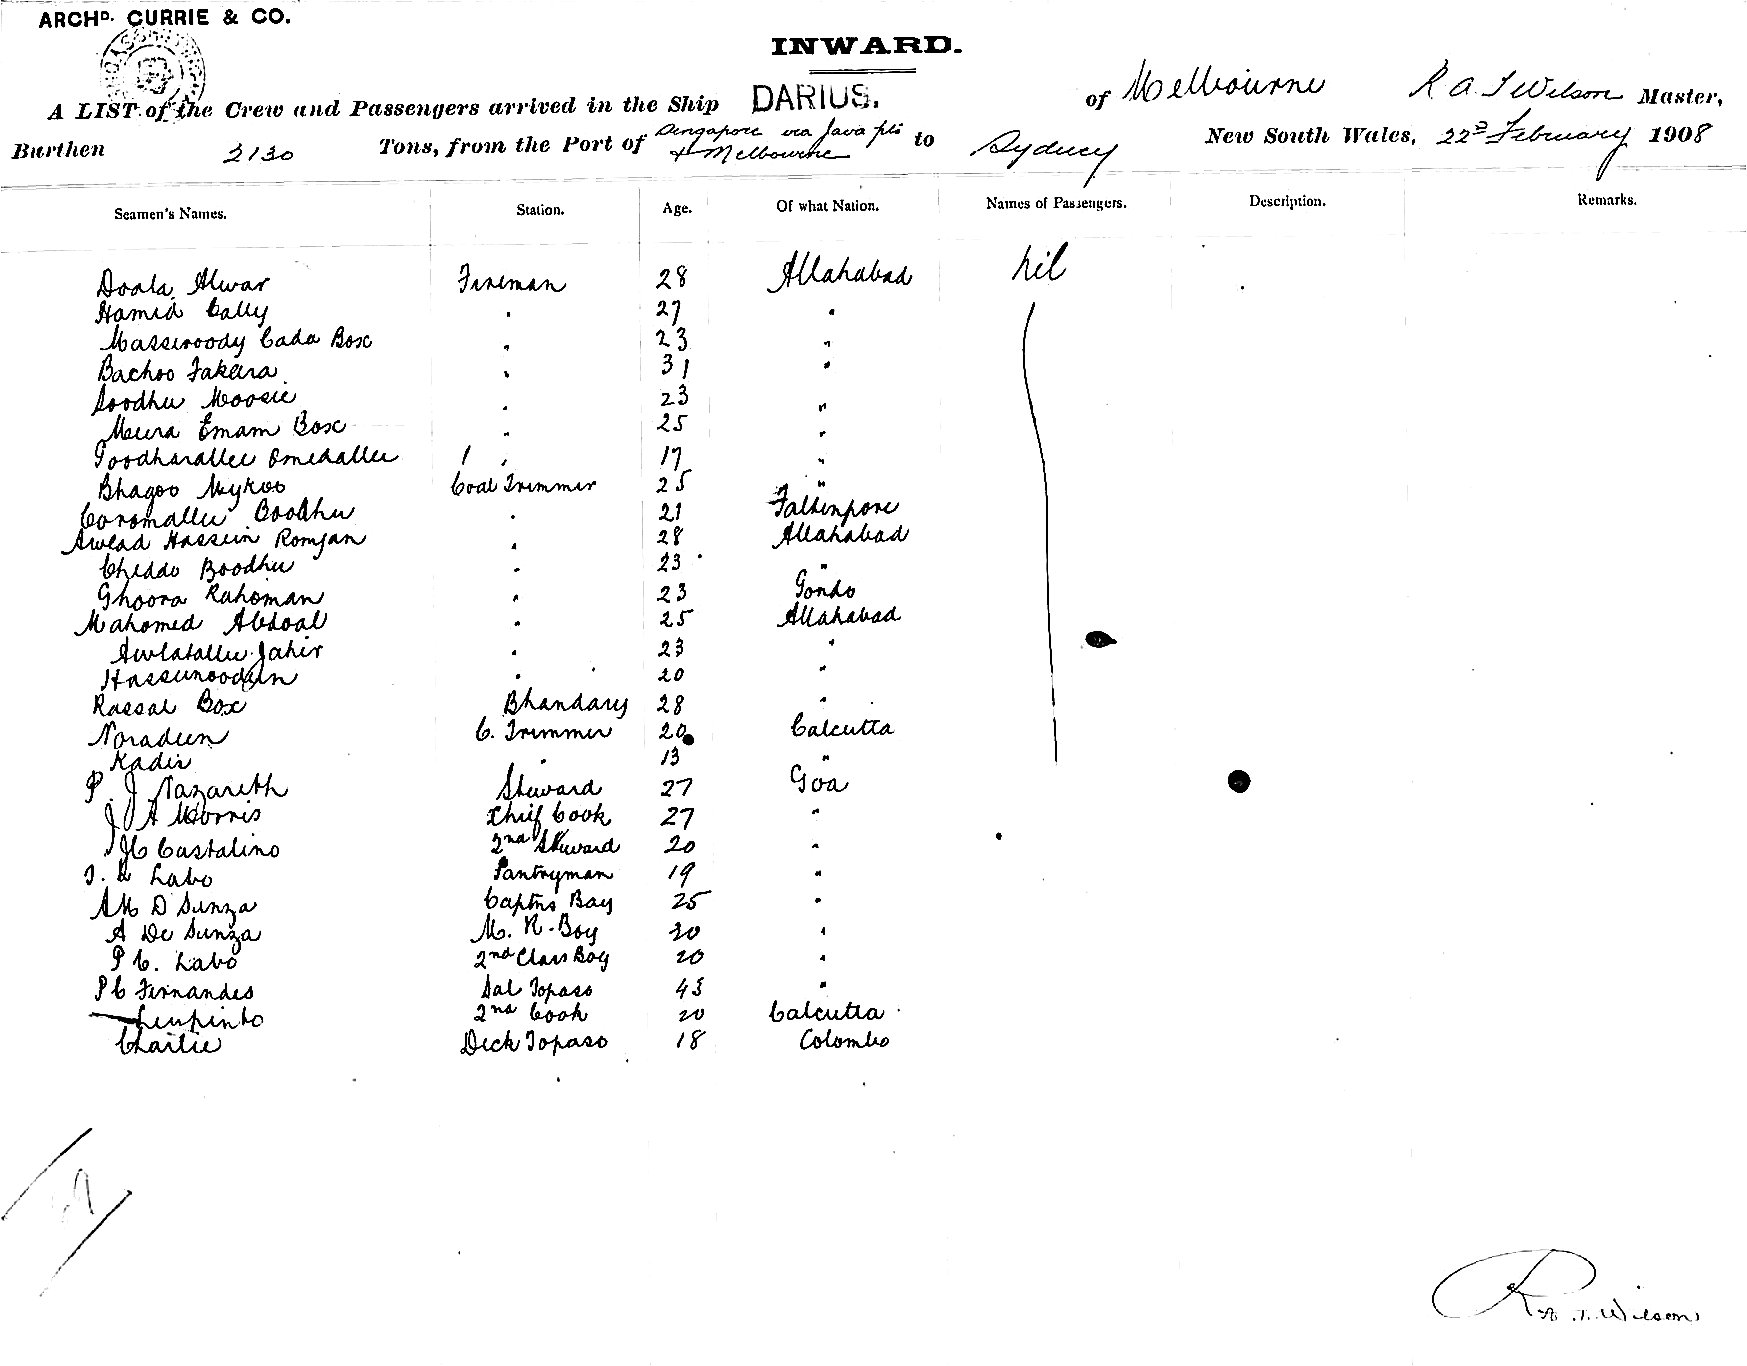 ARCHD. CURRIE & CO.
INWARD.
A LIST of the Crew and Passengers arrived in the Ship DARIUS. of Melbourne R A T Wilson Master,
Burthen 3130 Tons, from the Port of Singapore via Java pts & Melbourne to Sydney New South Wales, 22nd February 1908
Seamen's Names. Station. Age. Of what Nation. Names of Passengers. Description. Remarks.
Doala Alwar Fireman 28 Allahabad nil
Hamid Cally " 27 "
Masswoody Cada Box " 23 "
Bachoo Fakera " 31 "
Boodhu Moosie " 23 "
Meera Emam Box " 25 "
Goodharallee Omedallee " 17 "
Bhagoo Mykoo Coal Trimmer 25 "
Coromallee Boodhu " 21 Fattenpore
Awlad Hassein Romjan " 28 Allahabad
Cheddo Boodhu " 23 "
Ghoora Rahoman " 23 Gondo
Mahomed Abdoal " 25 Allahabad
Awlatallee Jahir " 23 "
Hassunooddin " 20 "
Rassal Box Bhandary 28 "
Noradeen C. Trimmer 20 Calcutta
Kadir " 13 "
P. J Nazareth Steward 27 Goa
J A Morris Chief Cook 27 "
J C Castalino 2nd Steward 20 "
Labo Pantryman 19 "
A M D Sunza Captns Bay 25 "
A De Sunza M. R. Boy 20 "
P C. Labo 2nd Class Boy 20 "
P C Fernandes Sal Topaso 43 "
Leupinto 2nd Cook 20 Calcutta
Charlie Deck Topaso 18 Colombo
R A T Wilson